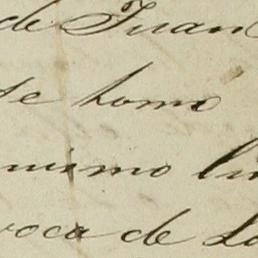 de Juan
se tomó
mismo lin
voca de La